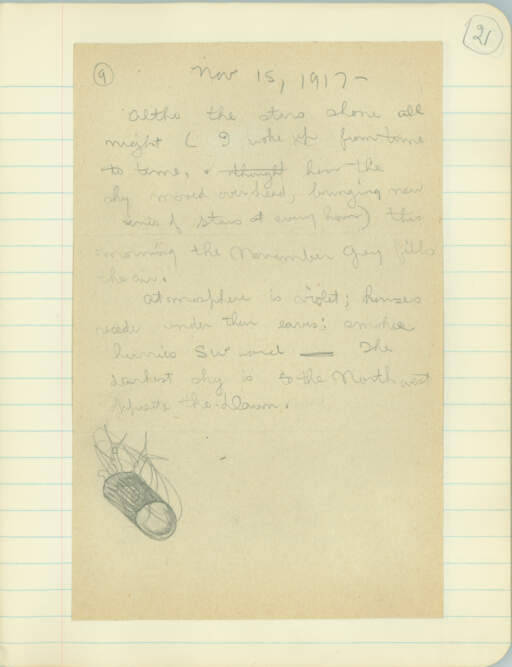 21
9
Nov 15, 1917 —
Altho the stars shone all
night ( I woke up from time
to time, & thought how the
sky moved overhead, bringing new
series of stars at every hour) this
morning the November Grey fills
the air.
Atmosphere is violet; houses
recede under their eaves; smoke
hurries SW ward — The
darkest sky is to the North west
opposite the dawn.